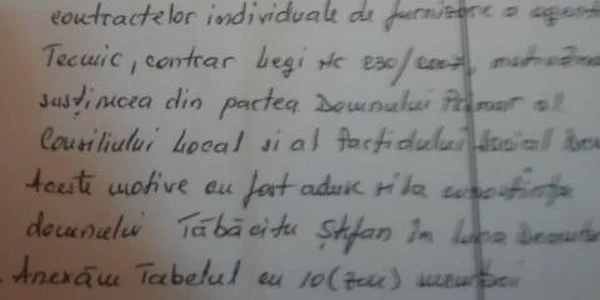 contractelor individuale de furnizare a agent
Tecuic, contrar Legi Nr 230/2007,
susținerea din partea Domnului Primar al
Consiliului Local si al Partidului Social
Aceste motive au fost aduse si la
domnului Tăbăcitu Ștefan în luna
Anexăm Tabelul cu 10 (zece) membri